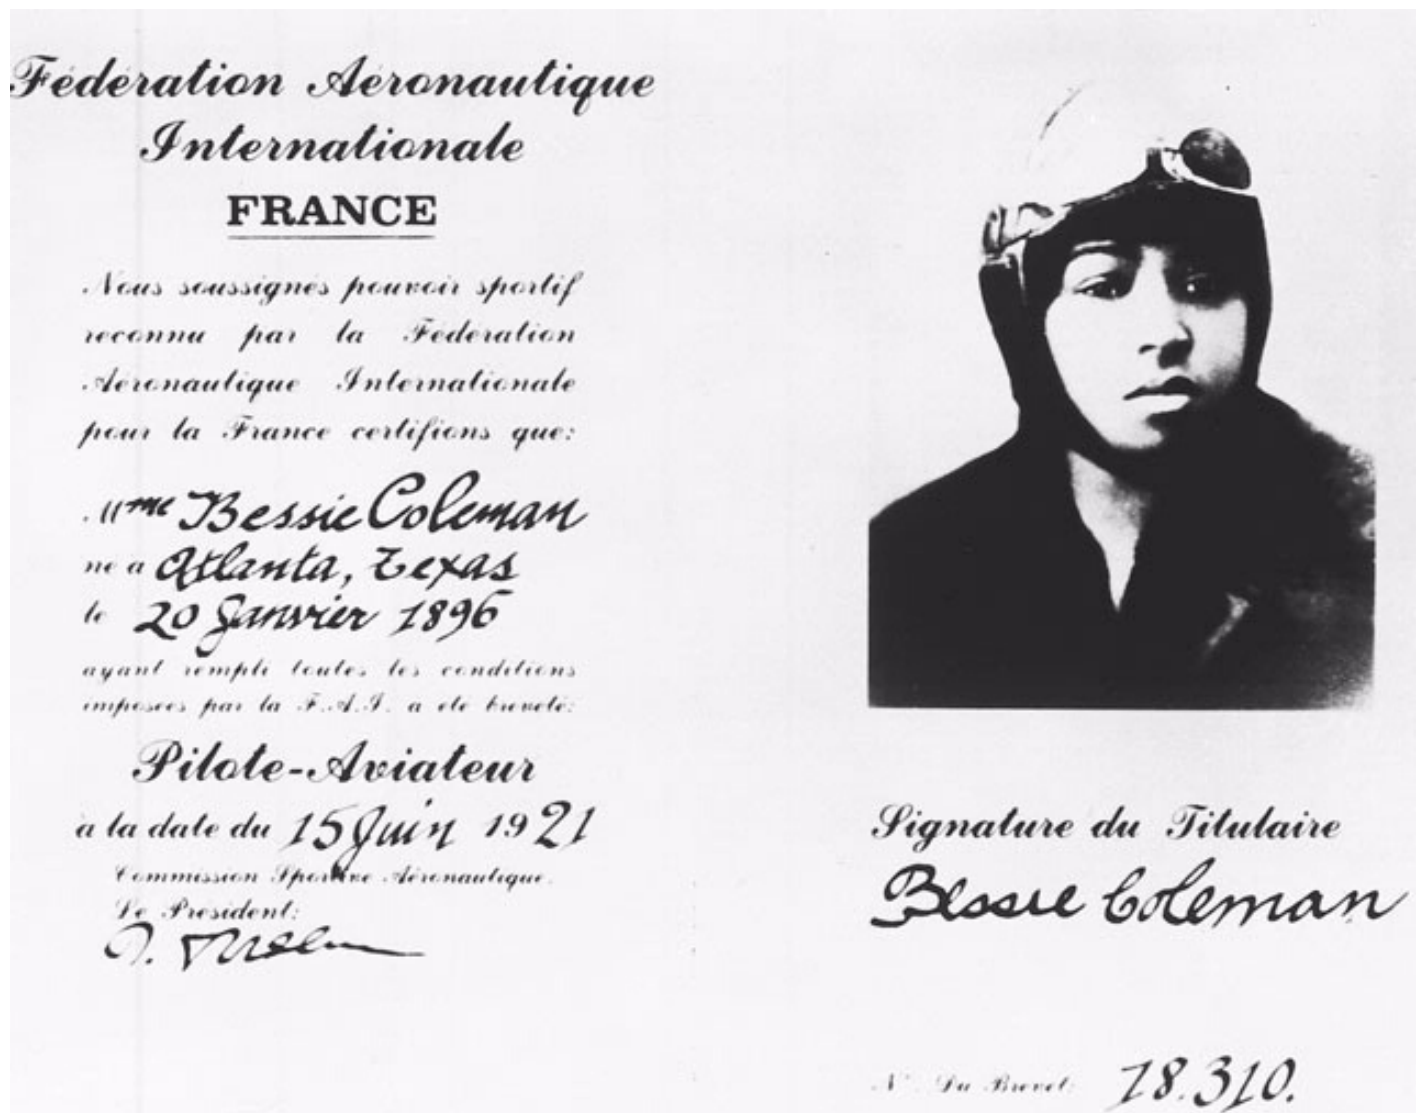 Fédération Aéronautique
Internationale
FRANCE
Nous soussignés pouvoir sportif
reconnu par la Fédération
Aéronautique Internationale
pour la France certifions que:
Mme Bessie Coleman
né à Atlanta, Texas
le 20 Janvier 1896
ayant rempli toutes les conditions
imposées par la F.A.I. a été breveté:
Pilote-Aviateur
à la date du 15 Juin 1921
Commission Sportive Aéronautique.
Le Président:
Signature du Titulaire
Bessie Coleman
No. Du Brevet: 18.310.